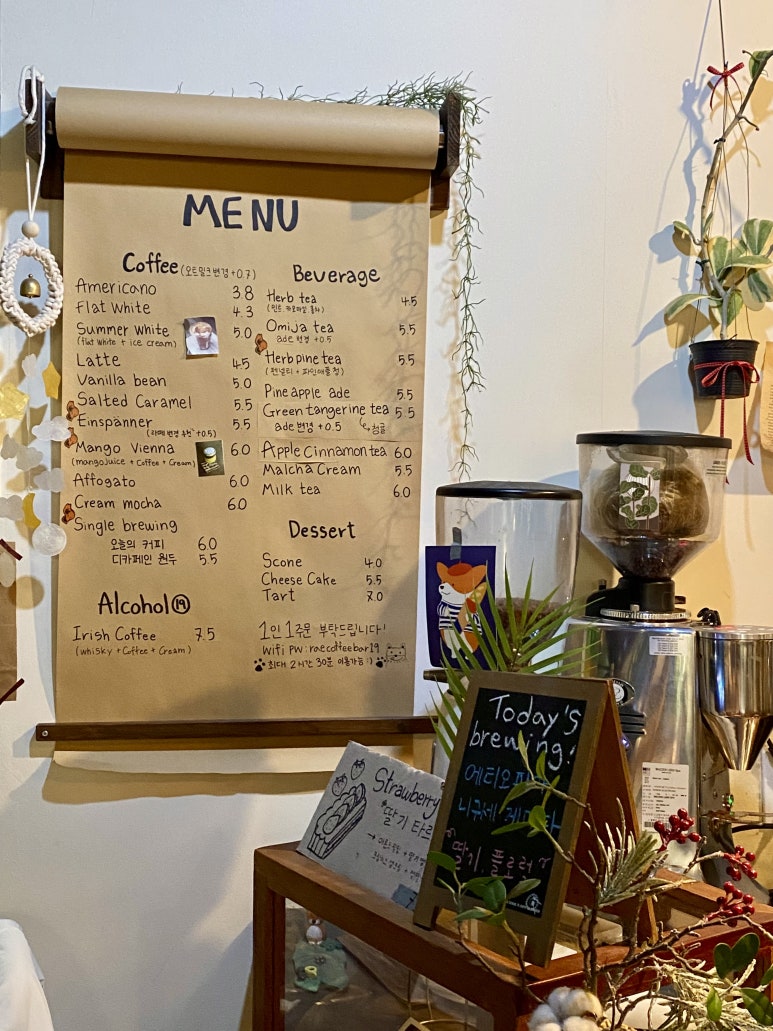 MENU
Coffee (오트밀크변경 +0.7)
Americano 3.8
Flat white 4.3
Summer white 5.0
(flat white + ice cream)
Latte 4.5
Vanilla bean 5.0
Salted Caramel 5.5
Einspänner 5.5
Mango Vienna 6.0
(mangojuice + Coffee + Cream)
Affogato 6.0
Cream mocha 6.0
Single brewing
오늘의 커피 6.0
디카페인 원두 5.5
Alcohol 19
Irish Coffee 7.5
(whisky + Coffee + Cream)
Beverage
Herb tea 4.5
Omija tea 5.5
ade 변경 +0.5
Herbpine tea 5.5
Pineapple ade 5.5
Green tangerine tea 5.5
ade 변경 +0.5 청귤
Apple Cinnamon tea 6.0
Malcha Cream 5.5
Milk tea 6.0
Dessert
Scone 4.0
Cheese Cake 5.5
Tart 7.0
1인 1주문 부탁드립니다!
Wifi PW: raecoffeebar19
최대 2시간 30분 이용가능 :)
Strawberry
딸기 타르
Today's
brewing!
에티오피아
딸기, 플로럴